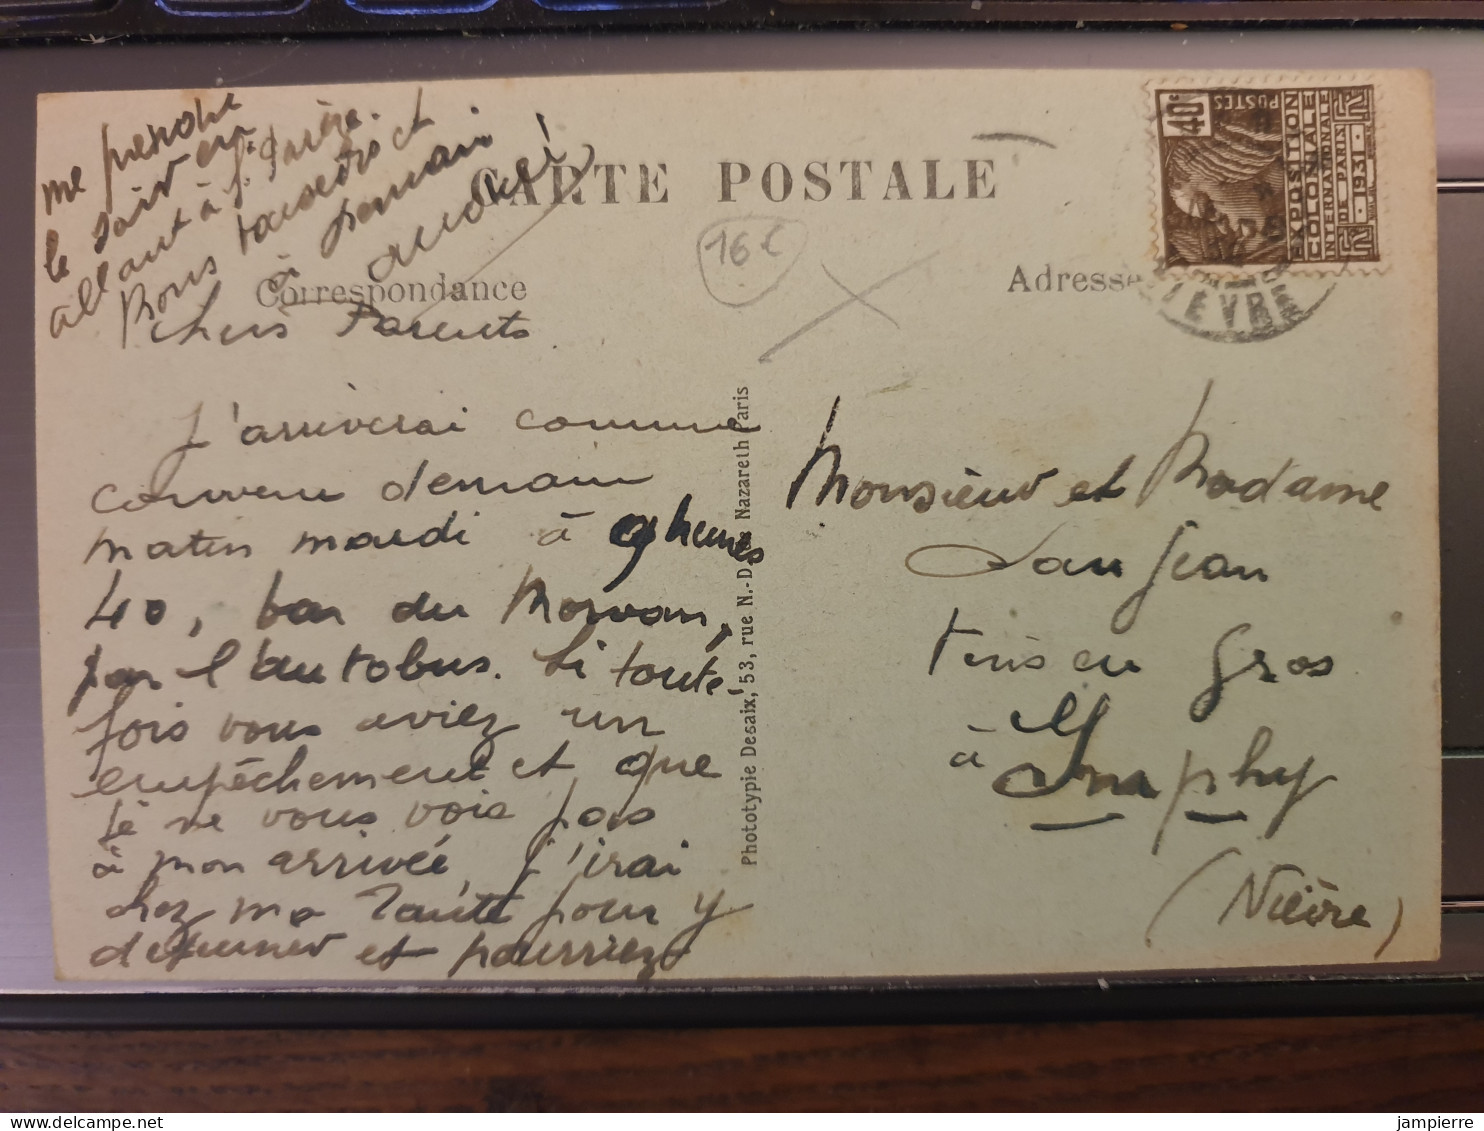 CARTE POSTALE
Correspondance
Adresse
16€
40c
POSTES
EXPOSITION
COLONIALE
INTERNATIONALE
DE PARIS
1931
IÈVRE
Chers Parents
J'arriverai comme
convenu demain
matin mardi à 9 heures
40, bar du Morvan,
par l'autobus. Si toute
fois vous aviez un
empêchement et que
je ne vous vois pas
à mon arrivée, j'irai
chez ma Tante pour y
déjeuner et pourriez
me prendre
le soir en
allant à
Bons baisers et
à demain
Phototypie Desaix, 53, rue N.-D. de Nazareth Paris
Monsieur et Madame
Vins en Gros
à Imphy
(Nièvre)
jampierre